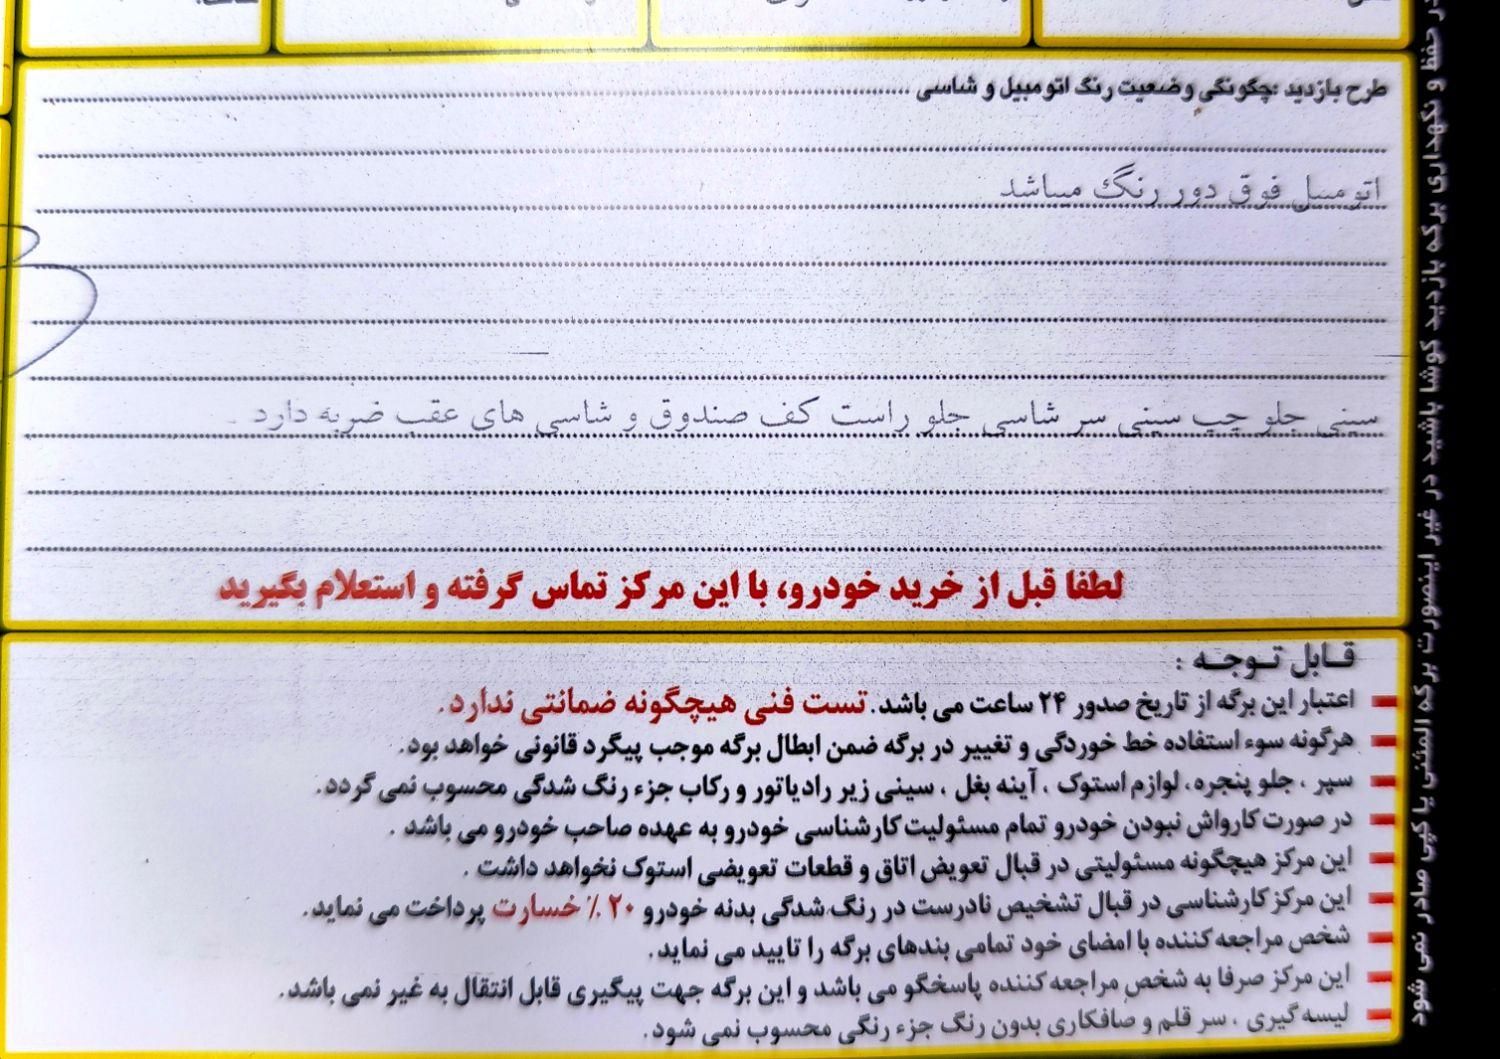 طرح بازدید :چگونگی وضعیت رنگ اتومبیل و شاسی
اتومبیل فوق دور رنگ میباشد
سینی جلو چپ سینی سر شاسی جلو راست کف صندوق و شاسی های عقب ضربه دارد .
لطفا قبل از خرید خودرو، با این مرکز تماس گرفته و استعلام بگیرید
قـابل تـوجـه :
اعتبار این برگه از تاریخ صدور ۲۴ ساعت می باشد. تست فنی هیچگونه ضمانتی ندارد.
هرگونه سوء استفاده خط خوردگی و تغییر در برگه ضمن ابطال برگه موجب پیگرد قانونی خواهد بود.
سپر ، جلو پنجره، لوازم استوک ، آینه بغل ، سینی زیر رادیاتور و رکاب جزء رنگ شدگی محسوب نمی گردد.
در صورت کارواش نبودن خودرو تمام مسئولیت کارشناسی خودرو به عهده صاحب خودرو می باشد .
این مرکز هیچگونه مسئولیتی در قبال تعویض اتاق و قطعات تعویضی استوک نخواهد داشت .
این مرکز کارشناسی در قبال تشخیص نادرست در رنگ شدگی بدنه خودرو ۲۰ ٪ خسارت پرداخت می نماید.
شخص مراجعه کننده با امضای خود تمامی بندهای برگه را تایید می نماید.
این مرکز صرفا به شخص مراجعه کننده پاسخگو می باشد و این برگه جهت پیگیری قابل انتقال به غیر نمی باشد.
لیسه گیری ، سر قلم و صافکاری بدون رنگ جزء رنگی محسوب نمی شود.
در حفظ و نگهداری برگه بازدید کوشا باشید در غیر اینصورت برگه المثنی یا کپی صادر نمی شود